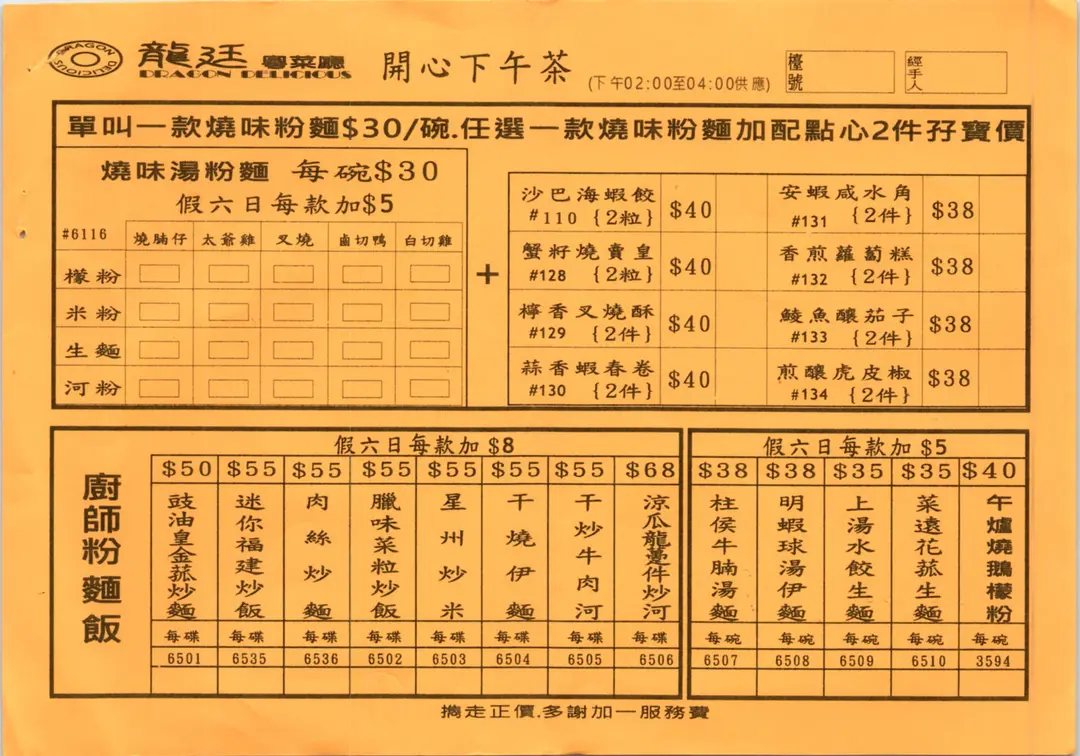 DRAGON DELICIOUS
龍廷 粵菜廳
DRAGON DELICIOUS
開心下午茶
(下午02:00至04:00供應)
檯號
經手人
單叫一款燒味粉麵$30/碗.任選一款燒味粉麵加配點心2件孖寶價
燒味湯粉麵 每碗$30
假六日每款加$5
#6116 燒腩仔 太爺雞 叉燒 鹵切鴨 白切雞
檬粉
米粉
生麵
河粉
+
沙巴海蝦餃 #110 {2粒} $40
蟹籽燒賣皇 #128 {2粒} $40
檸香叉燒酥 #129 {2件} $40
蒜香蝦春卷 #130 {2件} $40
安蝦咸水角 #131 {2件} $38
香煎蘿蔔糕 #132 {2件} $38
鯪魚釀茄子 #133 {2件} $38
煎釀虎皮椒 #134 {2件} $38
廚師粉麵飯
假六日每款加 $8
$50 豉油皇金菰炒麵 每碟 6501
$55 迷你福建炒飯 每碟 6535
$55 肉絲炒麵 每碟 6536
$55 臘味菜粒炒飯 每碟 6502
$55 星州炒米 每碟 6503
$55 干燒伊麵 每碟 6504
$55 干炒牛肉河 每碟 6505
$68 涼瓜龍躉件炒河 每碟 6506
假六日每款加 $5
$38 柱侯牛腩湯麵 每碗 6507
$38 明蝦球湯伊麵 每碗 6508
$35 上湯水餃生麵 每碗 6509
$35 菜遠花菰生麵 每碗 6510
$40 午爐燒鵝檬粉 每碗 3594
擕走正價.多謝加一服務費